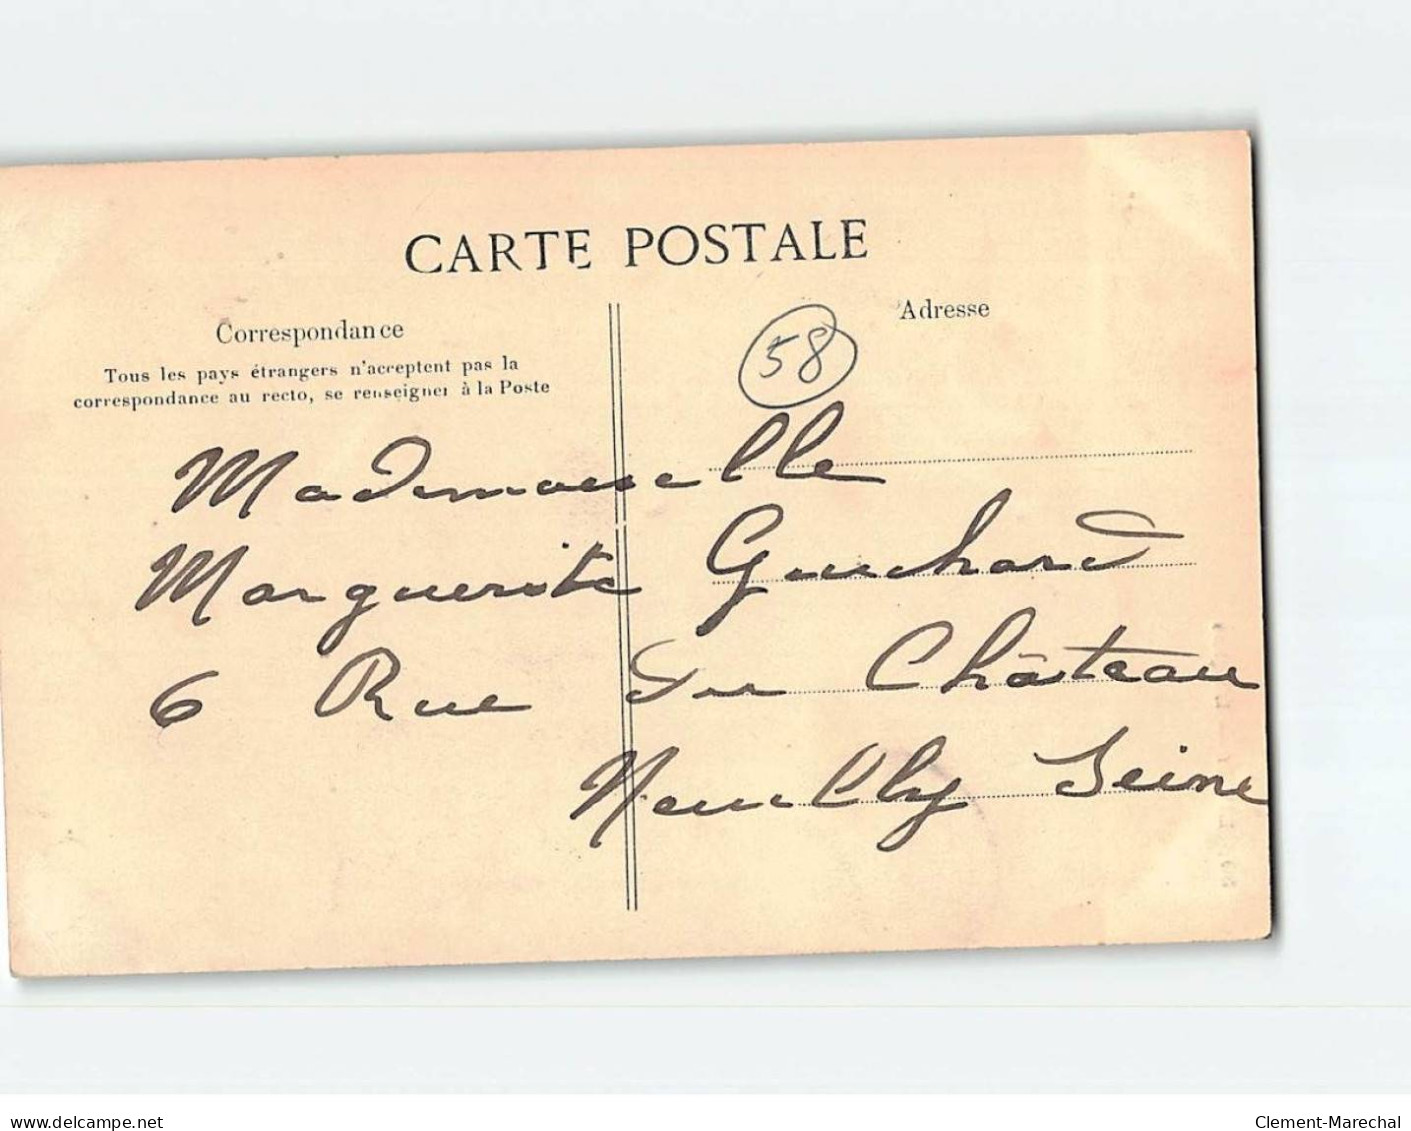 CARTE POSTALE
Correspondance
Adresse
Tous les pays étrangers n'acceptent pas la
correspondance au recto, se renseigner à la Poste
58
Mademoiselle
Marguerite Guichard
6 Rue du Château
Neuilly Seine
www.delcampe.net
Clement-Marechal